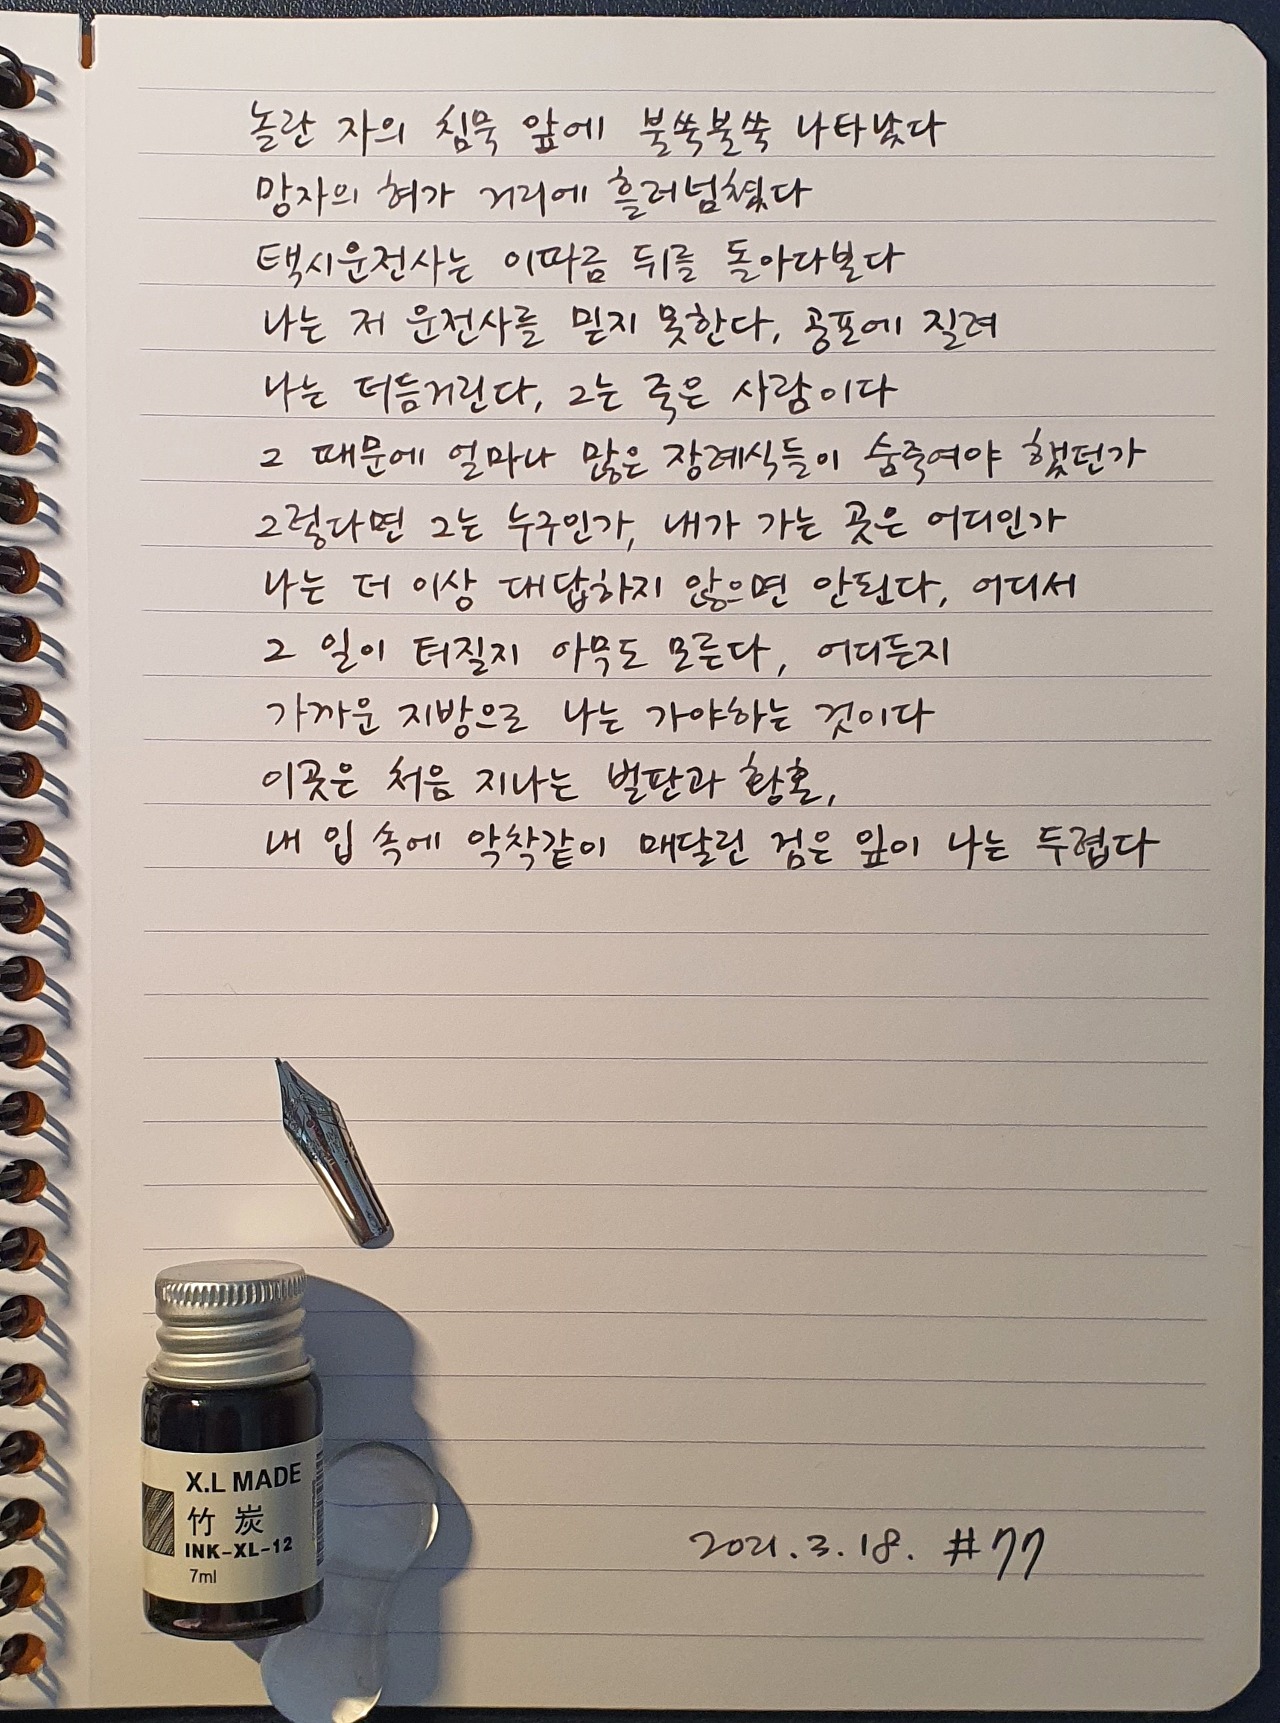 놀란 자의 침묵 앞에 불쑥불쑥 나타났다
망자의 혀가 거리에 흘러넘쳤다
택시운전사는 이따금 뒤를 돌아다본다
나는 저 운전사를 믿지 못한다, 공포에 질려
나는 더듬거린다, 그는 죽은 사람이다
그 때문에 얼마나 많은 장례식들이 숨죽여야 했던가
그렇다면 그는 누구인가, 내가 가는 곳은 어디인가
나는 더 이상 대답하지 않으면 안된다, 어디서
그 일이 터질지 아무도 모른다, 어디든지
가까운 지방으로 나는 가야하는 것이다
이곳은 처음 지나는 벌판과 황혼,
내 입 속에 악착같이 매달린 검은 잎이 나는 두렵다
X.L MADE
竹 炭
INK-XL-12
7ml
2021.3.18. #77